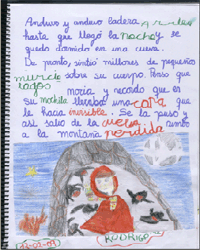 Anduvo y anduvo ladera, grandes
hasta que llegó la noche y se
quedó dormido en una cueva.
De pronto, sintió millones de pequeños
murcielagos sobre su cuerpo. Pensó que
moría y recordó que en
su mochila llevaba una capa que
le hacía invencible. Se la puso y
así salió de la cueva
a la montaña perdida
RODRIGO